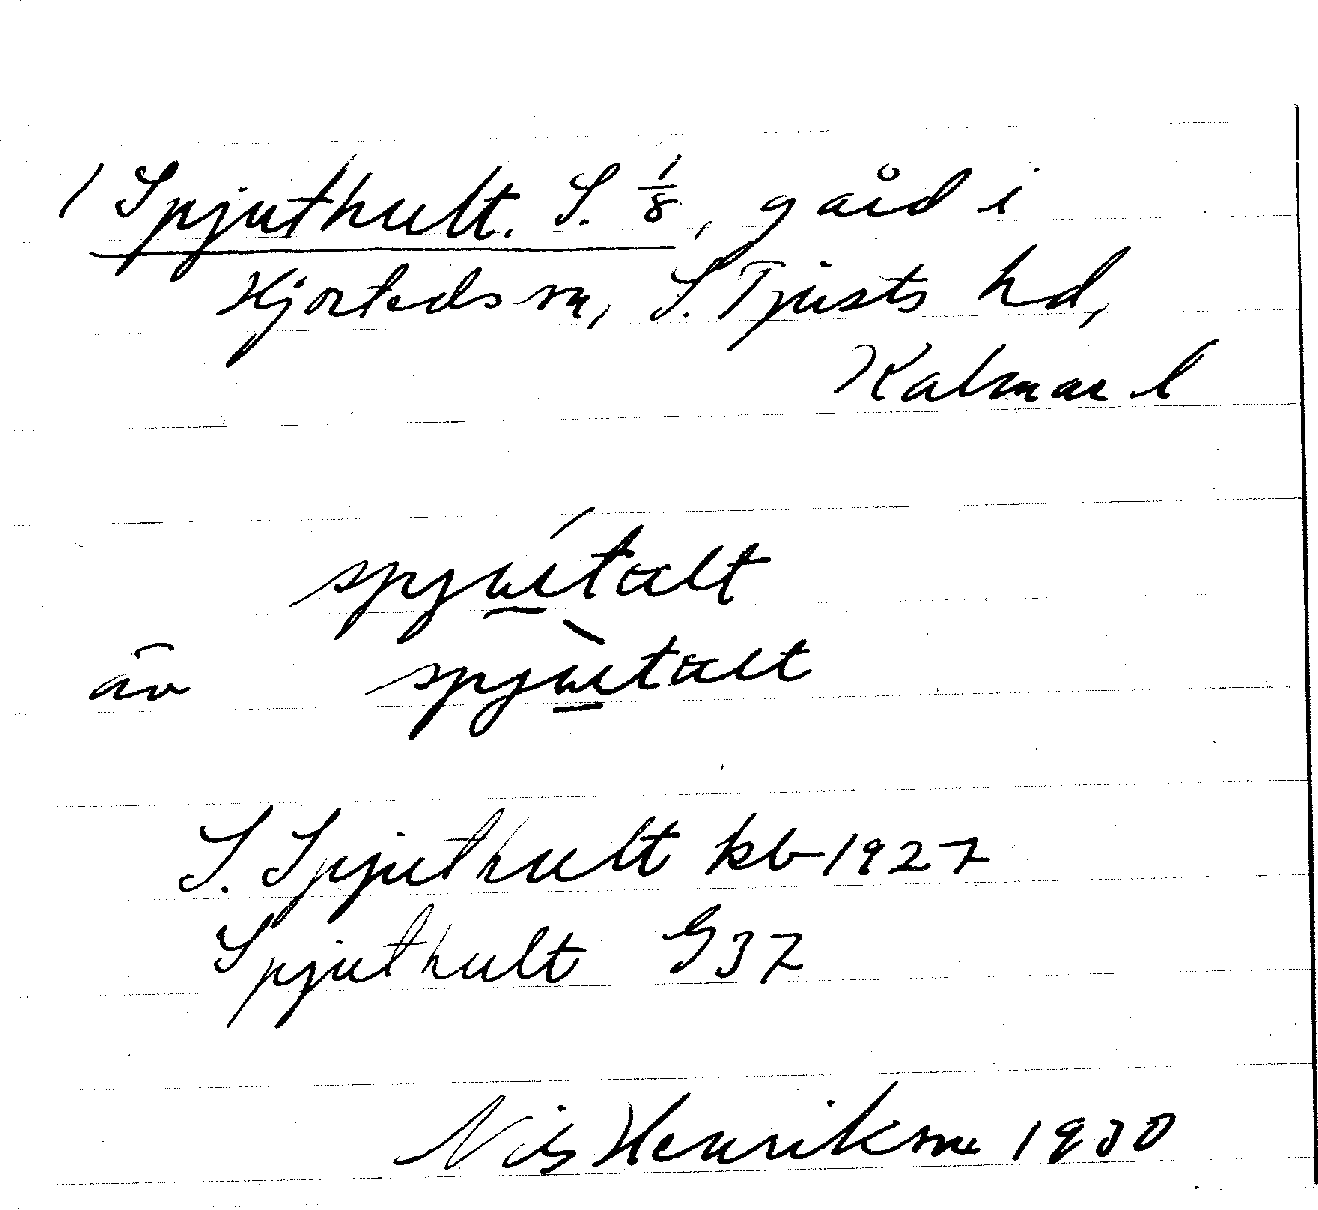 1 Spjuthult. S. 1/8, gård i
Hjorteds sn, S. Tjusts hd,
Kalmar l
spjút
äv spjùt
S. Spjuthult kb 1927
Spjuthult G 37
Nils Henriksson 1930